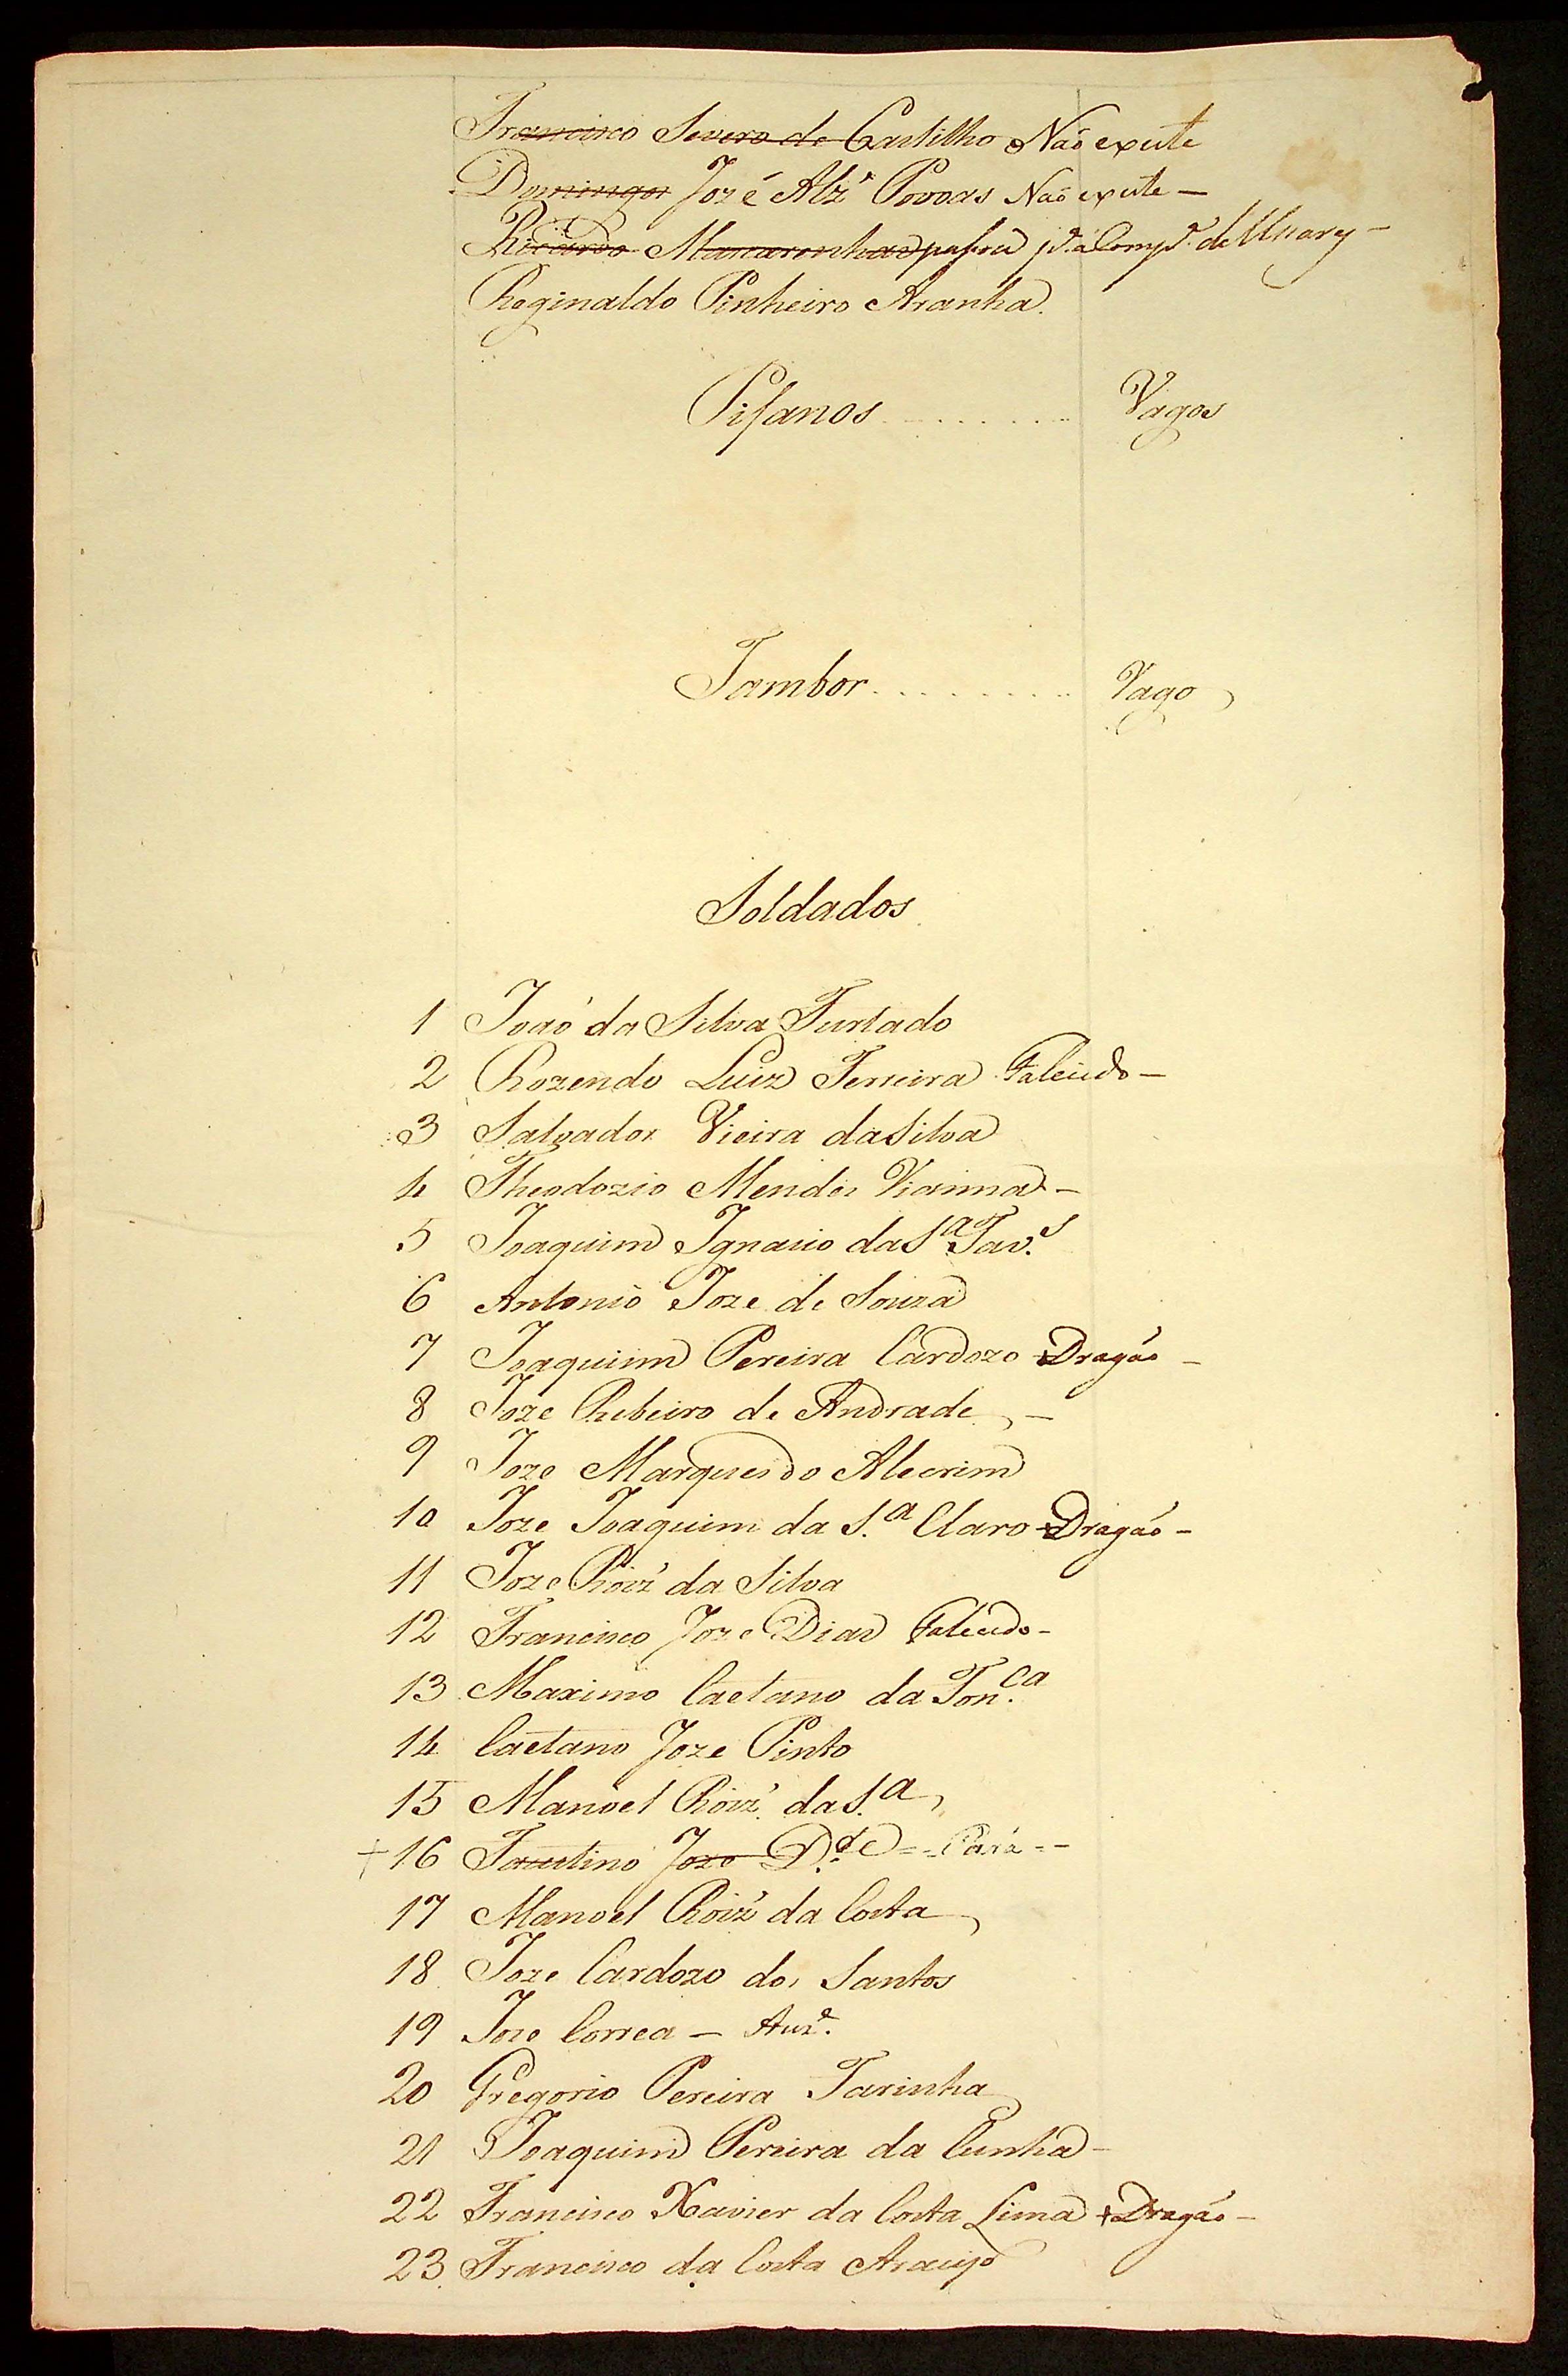 Francisco Severo de Castilho Não existe
Domingos José Alz' Povoas Não existe —
Ricardo Mascarenhas passou pª a Compª de
Reginaldo Pinheiro Aranha.
Pifanos . . . . . . . . Vagos
Tambor . . . . . . . . Vago
Soldados
1 João da Silva Furtado
2 Rozendo Luiz Ferreira Falecido —
3 Salvador Vieira da Silva
4 Theodozio Mendes Vianna —
5 Joaquim Ignacio da Sª Tav.s
6 Antonio Joze de Souza
7 Joaquim Pereira Cardozo + Dragão —
8 Joze Ribeiro de Andrade —
9 Joze Marques do Alecrim
10 Joze Joaquim da S.ª Claro + Dragão —
11 Joze Roiz' da Silva
12 Francisco Joze Dias Falecido —
13 Maximo Caetano da Fon.ca
14 Caetano Joze Pinto
15 Manoel Roiz' da S.ª
+ 16 Faustino Joze D.de = = Pará = —
17 Manoel Roiz' da Costa
18 Joze Cardozo dos Santos
19 Joze Correa — Auz.e
20 Gregorio Pereira Farinha
21 Joaquim Pereira da Cunha —
22 Francisco Xavier da Costa Lima + Dragão —
23 Francisco da Costa Araujo